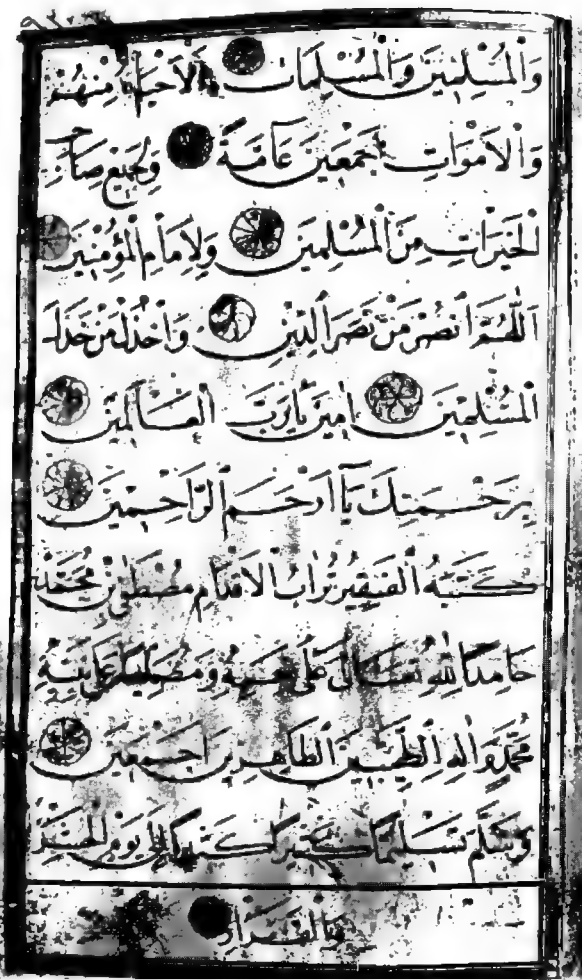 وَالْمُسْلِمِينَ وَالْمُسْلِمَاتِ وَالْأَحْيَاءِ مِنْهُمْ
وَالْأَمْوَاتِ أَجْمَعِينَ عَامَّةً وَلِجَمِيعِ
الْخَيْرَاتِ مِنَ الْمُسْلِمِينَ وَلِإِمَامِ الْمُؤْمِنِينَ
اَللّٰهُمَّ انْصُرْ مَنْ نَصَرَ الدِّينَ وَاخْذُلْ مَنْ خَذَلَ
الْمُسْلِمِينَ اٰمِينَ يَا رَبَّ الْعَالَمِينَ
بِرَحْمَتِكَ يَآ اَرْحَمَ الرَّاحِمِينَ
كَتَبَهُ الْفَقِيرُ تُرَابُ الْأَقْدَامِ مُصْطَفٰى بْنُ مُحَمَّد
حَامِدًا لِلّٰهِ تَعَالٰى عَلٰى نِعَمِهِ وَمُصَلِّيًا عَلٰى نَبِيِّهِ
مُحَمَّدٍ وَاٰلِهِ الطَّيِّبِينَ الطَّاهِرِينَ اَجْمَعِينَ
وَسَلَّمَ تَسْلِيمًا كَثِيرًا كَثِيرًا اِلٰى يَوْمِ الْحَشْرِ
وَالْقَرَارِ